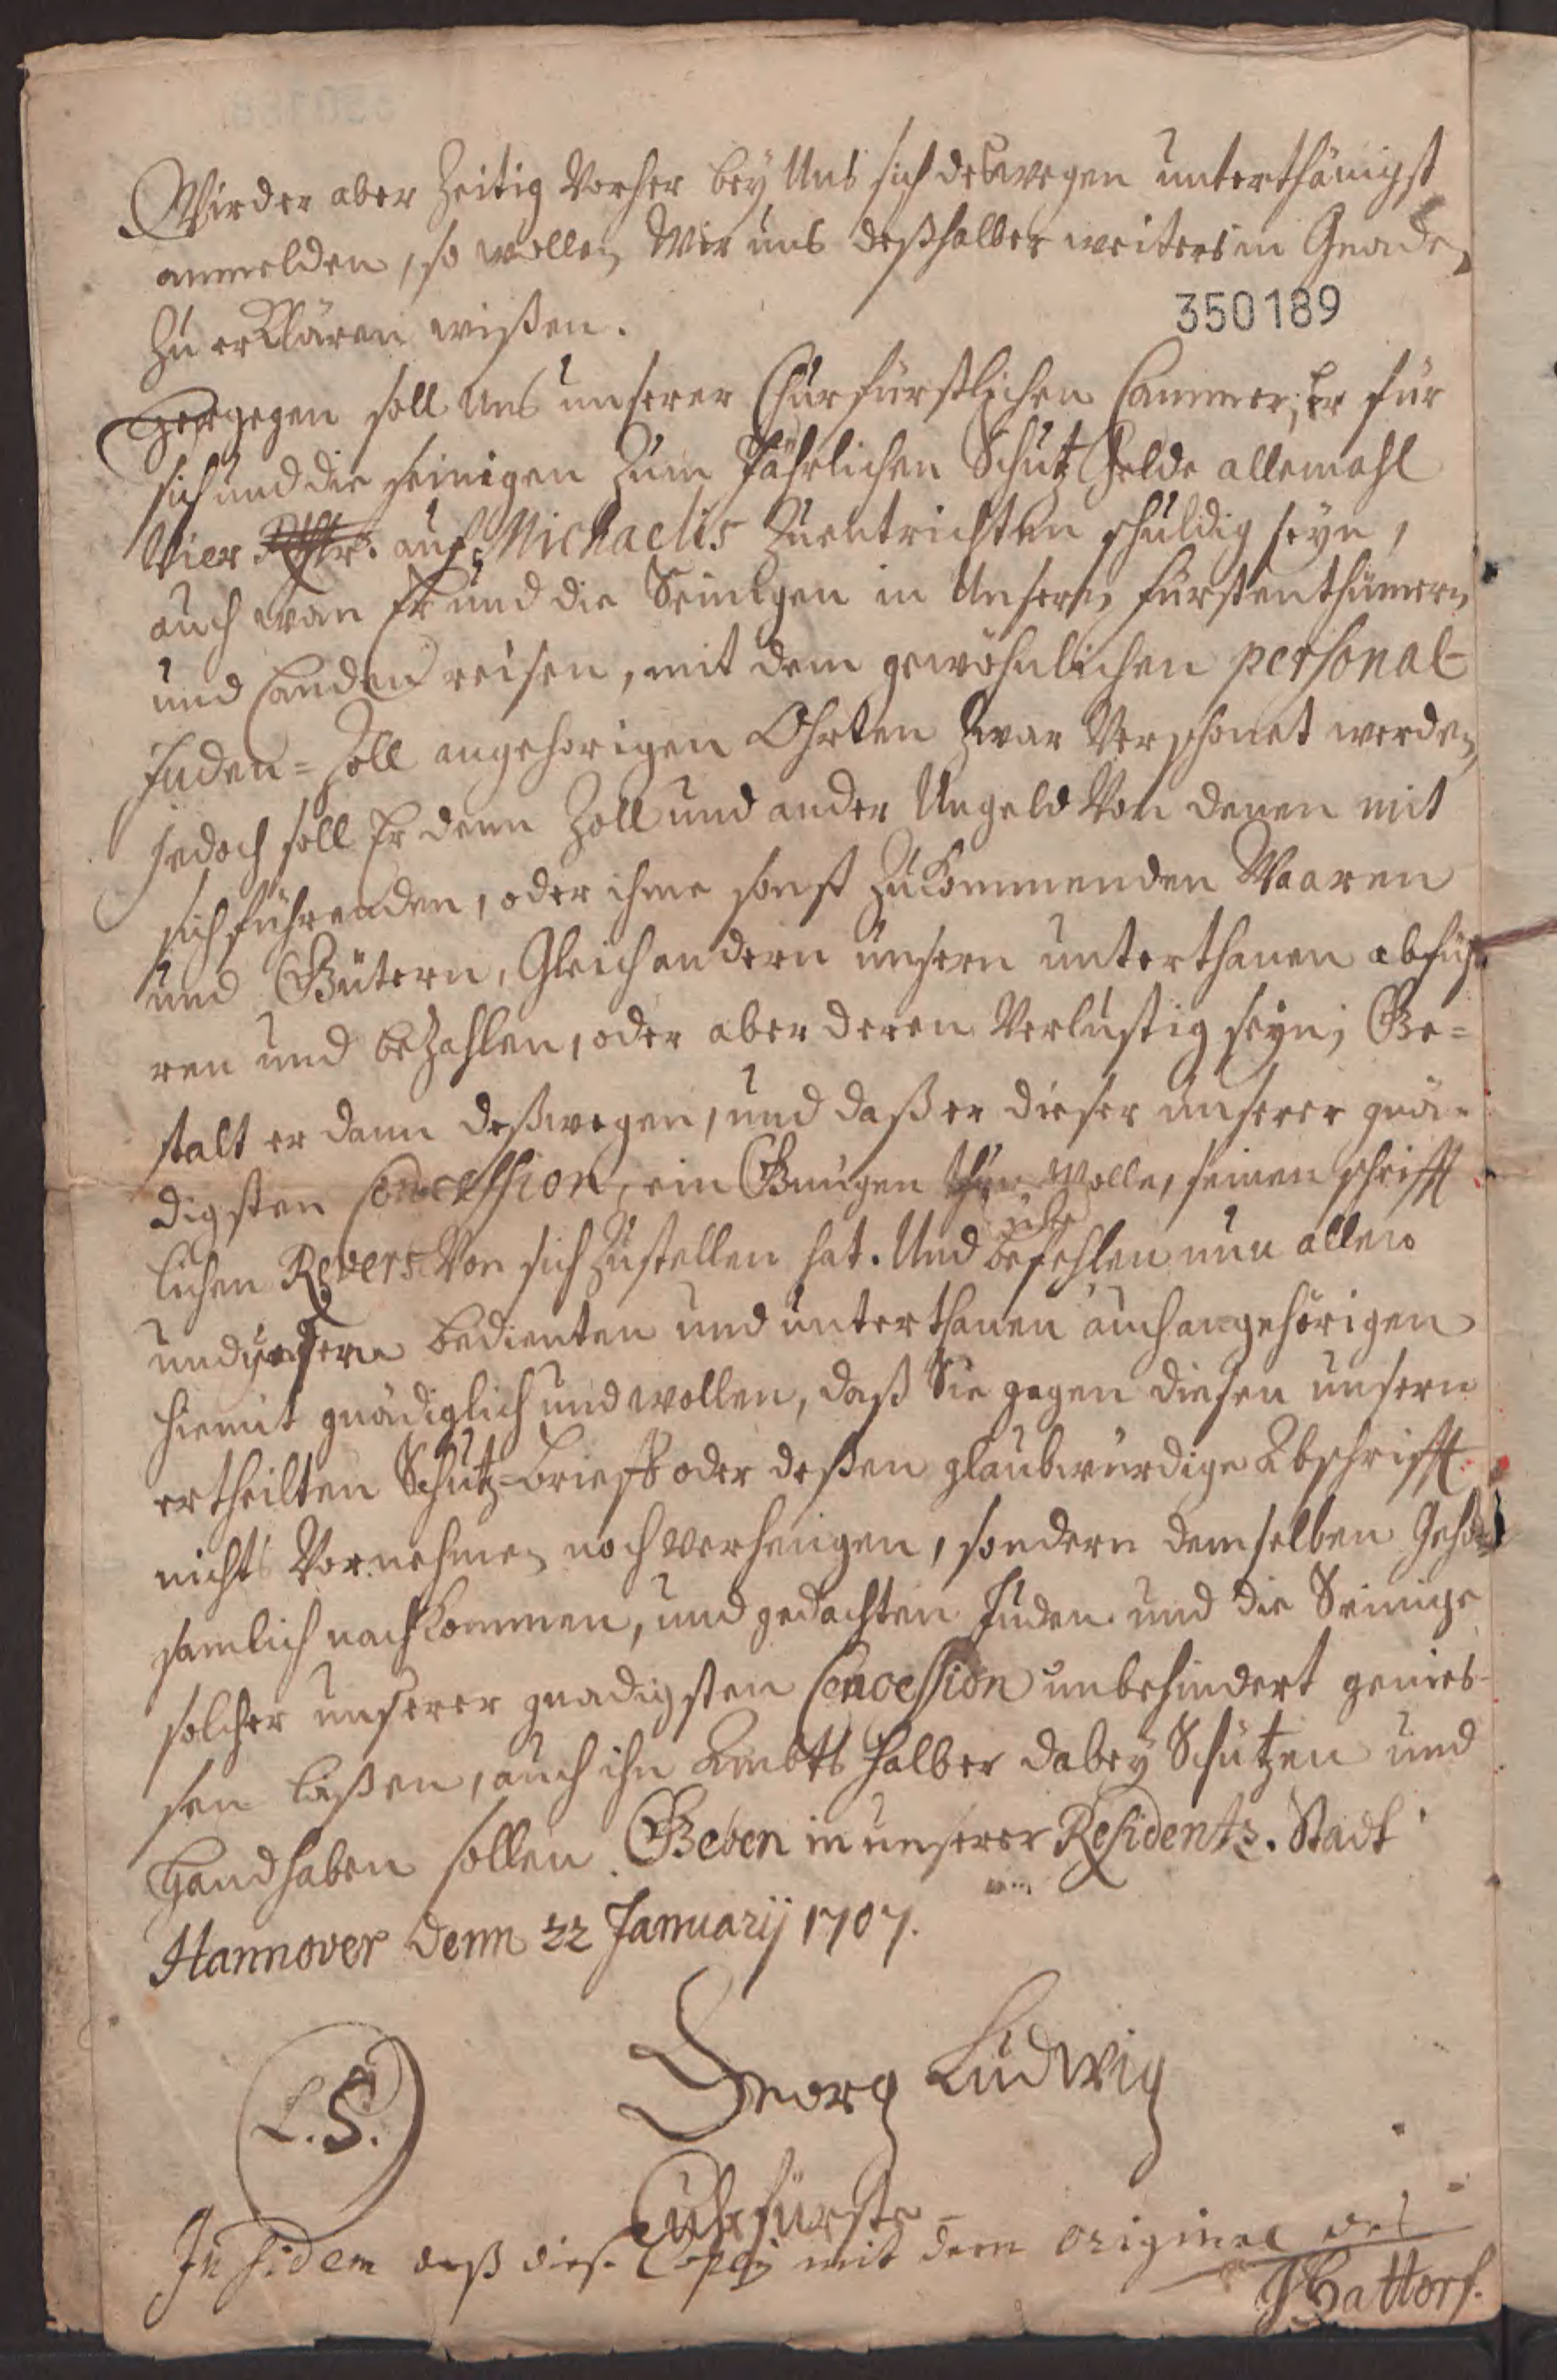 Wird er aber Zeitig Vorher bey Uns sich deswegen unterthänigst
anmelden, so wollen Wir uns deßhalber weiters in Gnaden
Zu erklären wißen.
350189
Hergegen soll Uns unserer Churfürstlichen Cammer, Er für
sich und die seinigen Zum Jährlichen Schutz Gelde allemahl
Vier Rthlr. auf Michaelis Zuentrichten schuldig seyn,
auch wan Er und die Seinigen in Unsern Fürstenthümern
und Landen reisen, mit dem gewöhnlichen personal-
Juden-Zoll angehorigen Ohrten Zwar Verschonet werden,
jedoch soll Er denn Zoll und ander Ungeld Von denen mit
sich führenden, oder ihme sonst Zukommenden Waaren
und Gütern, Gleich andern unsern unterthanen abfüh-
ren und beZahlen, oder aber deren Verlustig seyn; Ge-
stalt er dann deßwegen, und daß er dieser unserer gnä-
digsten Concession, ein Gnügen thun Wolle, seinen schrifft
lichen Revers Von sich Zustellen hat. Und befehlen nun allen
und unsern bedienten und unterthanen auch angehörigen
hiemit gnädiglich und wollen, daß Sie gegen diesen unsern
ertheilten Schutz-brieff oder deßen glaubwürdige Abschrifft
nichts Vornehmen noch verhengen, sondern demselben Gehor
samlich nachkommen, und gedachten Juden und die Seinige
solcher unserer gnadigsten Concession unbehindert genies-
sen laßen, auch ihn Ambts halber dabey Schützen und
Handhaben sollen. Geben in unserer Residentz-Stadt
Hannover denn 22 Januarij 1707.
L.S.
Georg Ludwig
Cuhrfürst
In fidem daß diese Copey mit dem original
JHattorf.